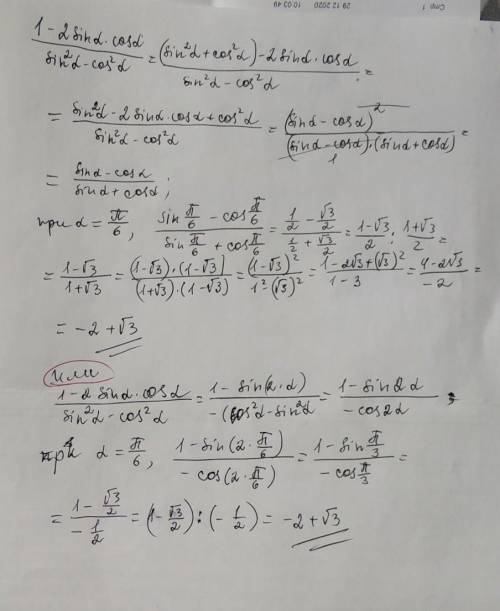 Стр. 1 29 12 2020 10:03:49
(1 - 2 sinα · cosα)/(sin²α - cos²α) = ((sin²α + cos²α) - 2 sinα · cosα)/(sin²α - cos²α) =
= (sin²α - 2 sinα · cosα + cos²α)/(sin²α - cos²α) = (sinα - cosα)²/((sinα - cosα) · (sinα + cosα)) =
= (sinα - cosα)/(sinα + cosα) ;
при α = π/6, (sin π/6 - cos π/6)/(sin π/6 + cos π/6) = (1/2 - √3/2)/(1/2 + √3/2) = (1-√3)/2 : (1+√3)/2 =
= (1-√3)/(1+√3) = ((1-√3) · (1-√3))/((1+√3) · (1-√3)) = (1-√3)²/(1² - (√3)²) = (1 - 2√3 + (√3)²)/(1 - 3) = (4 - 2√3)/(-2) =
= -2 + √3
или
(1 - 2 sinα · cosα)/(sin²α - cos²α) = (1 - sin(2·α))/(-(cos²α - sin²α) = (1 - sin 2α)/(-cos 2α) ;
при α = π/6, (1 - sin(2 · π/6))/(-cos(2 · π/6)) = (1 - sin π/3)/(-cos π/3) =
= (1 - √3/2)/(-1/2) = (1 - √3/2) : (-1/2) = -2 + √3